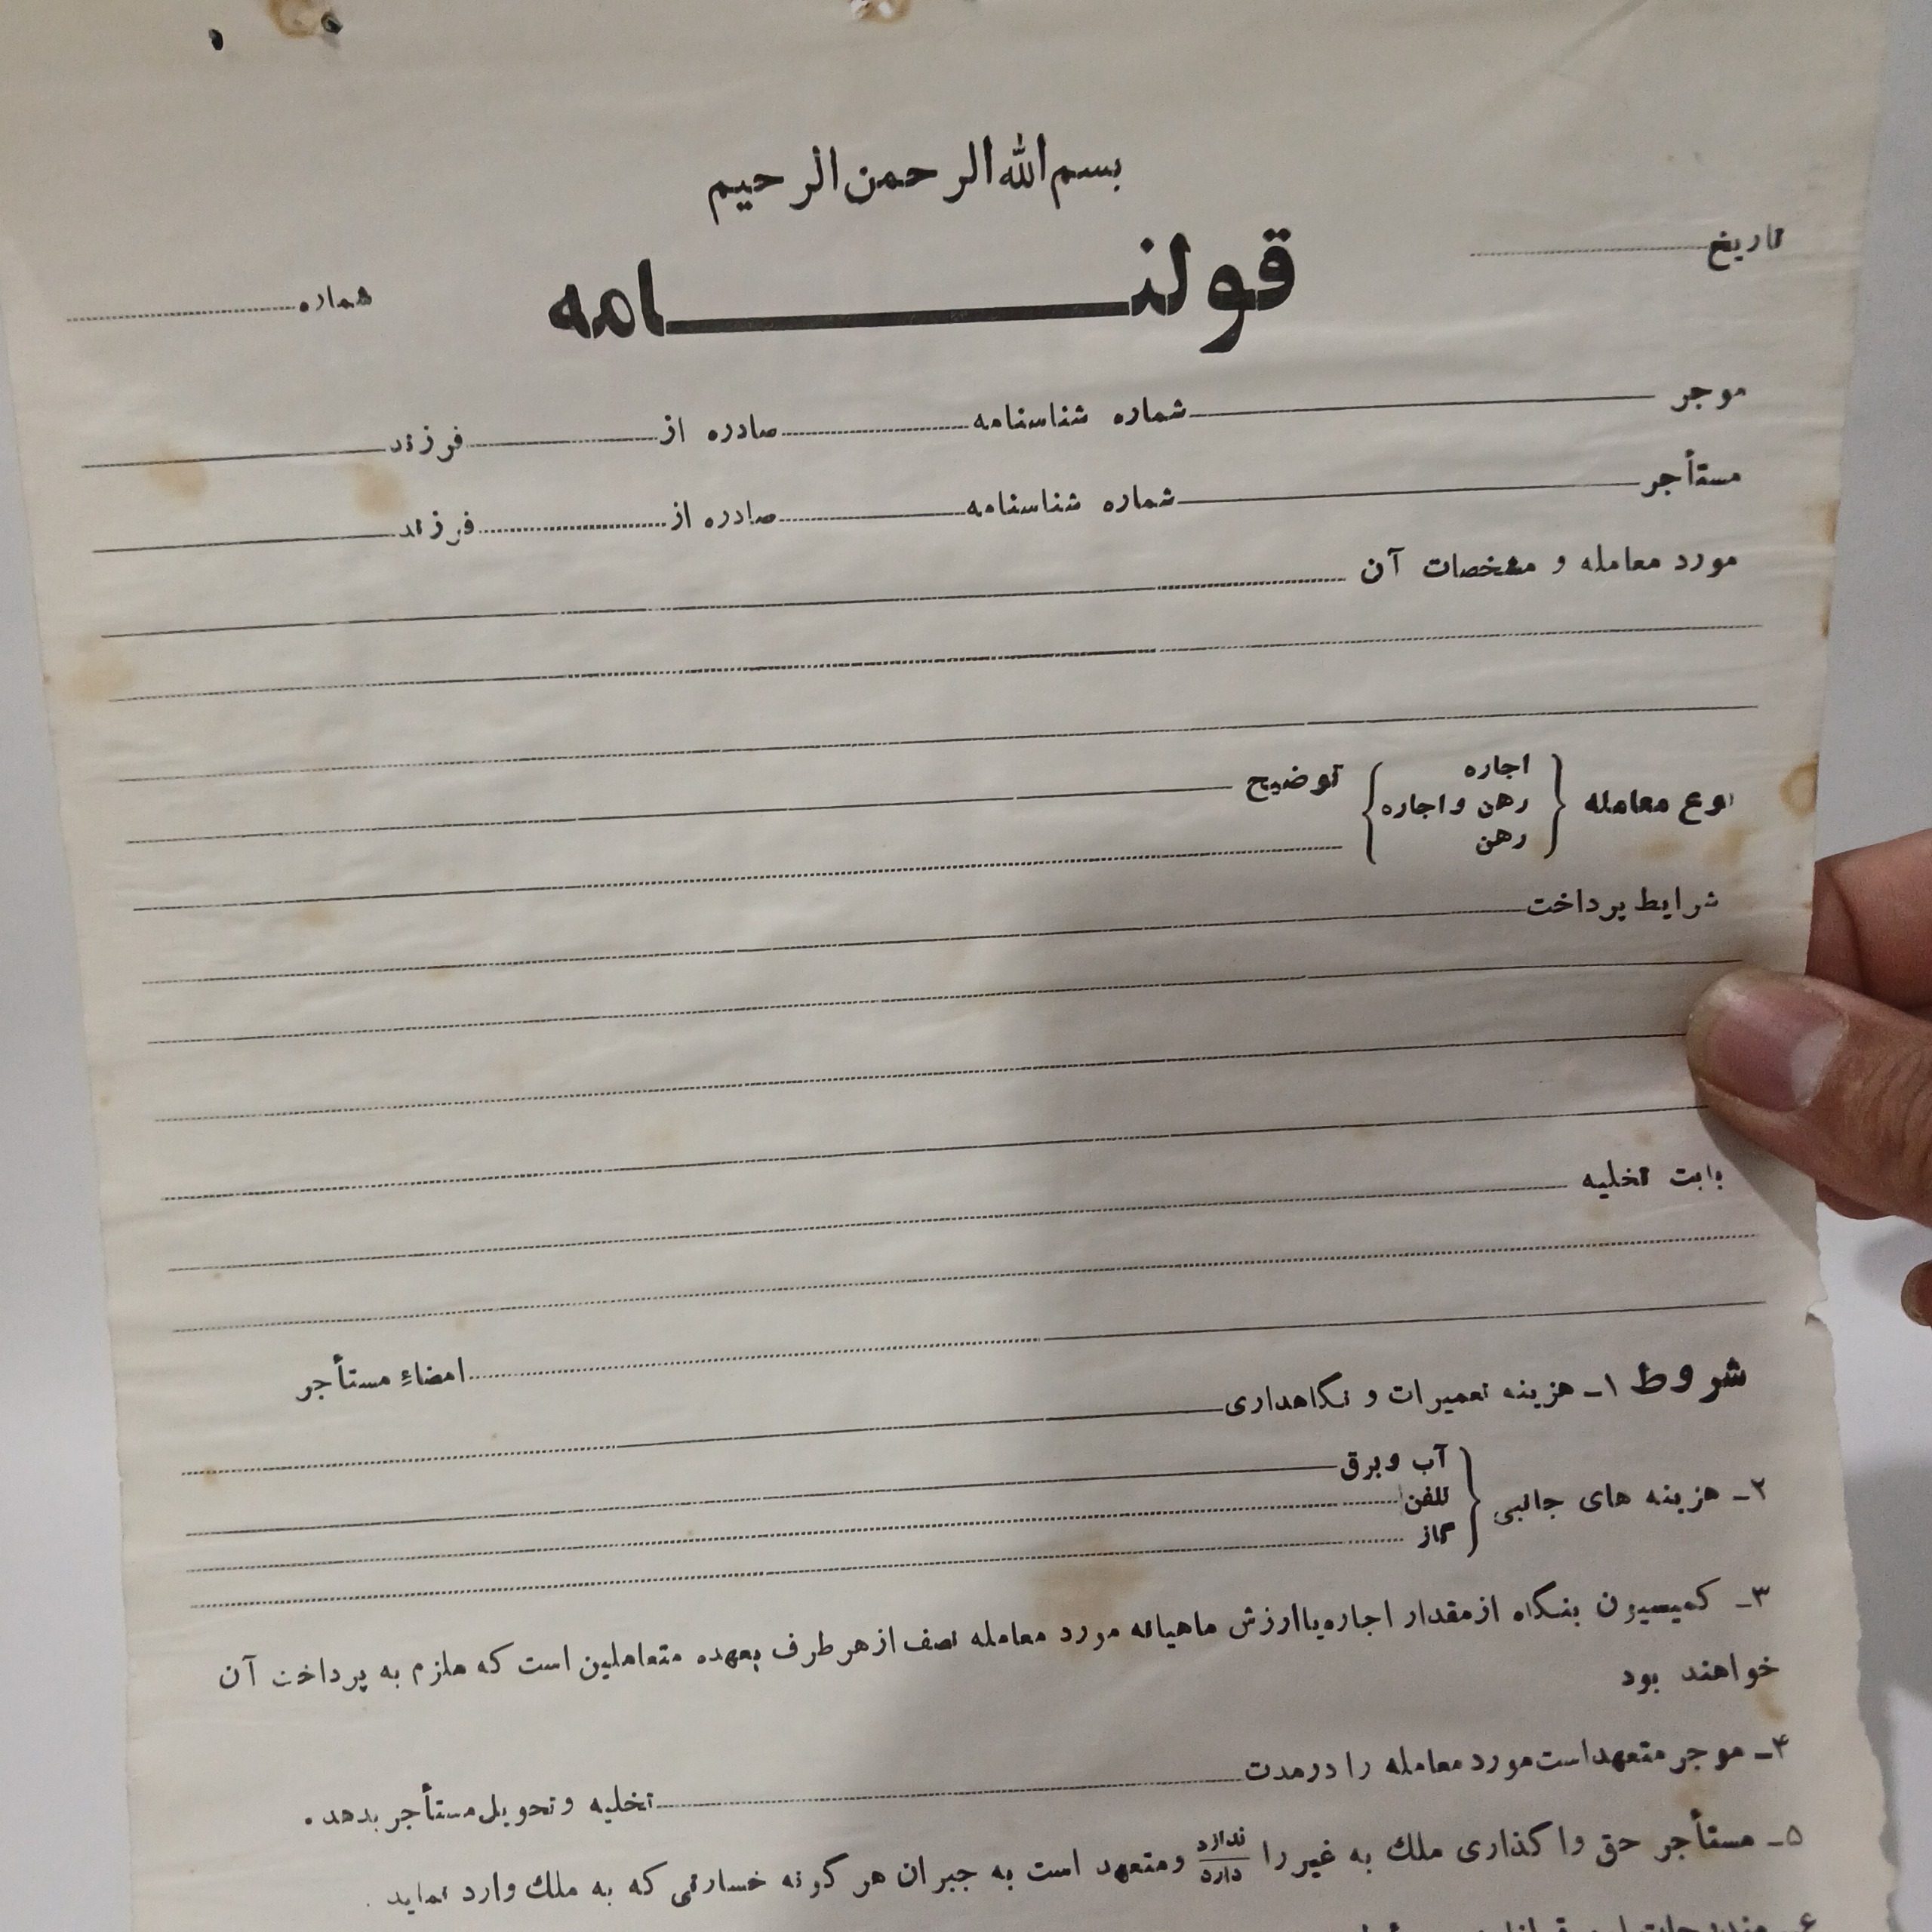 بسم الله الرحمن الرحیم
تاریخ
قولنــــــــــامه
شماره
موجر شماره شناسنامه صادره از فرزند
مستأجر شماره شناسنامه صادره از فرزند
مورد معامله و مشخصات آن
نوع معامله { اجاره
رهن و اجاره
رهن } توضیح
شرایط پرداخت
بابت تخلیه
امضاءِ مستأجر
شروط ۱ـ هزینه تعمیرات و نگاهداری
۲ـ هزینه های جانبی { آب و برق
تلفن
گاز
۳ـ کمیسیون بنگاه از مقدار اجاره یا ارزش ماهیانه مورد معامله نصف از هر طرف بعهده متعاملین است که ملزم به پرداخت آن
خواهند بود
۴ـ موجر متعهد است مورد معامله را در مدت تخلیه و تحویل مستأجر بدهد .
۵ـ مستأجر حق واگذاری ملک به غیر را ندارد / دارد و متعهد است به جبران هر گونه خسارتی که به ملک وارد نماید .